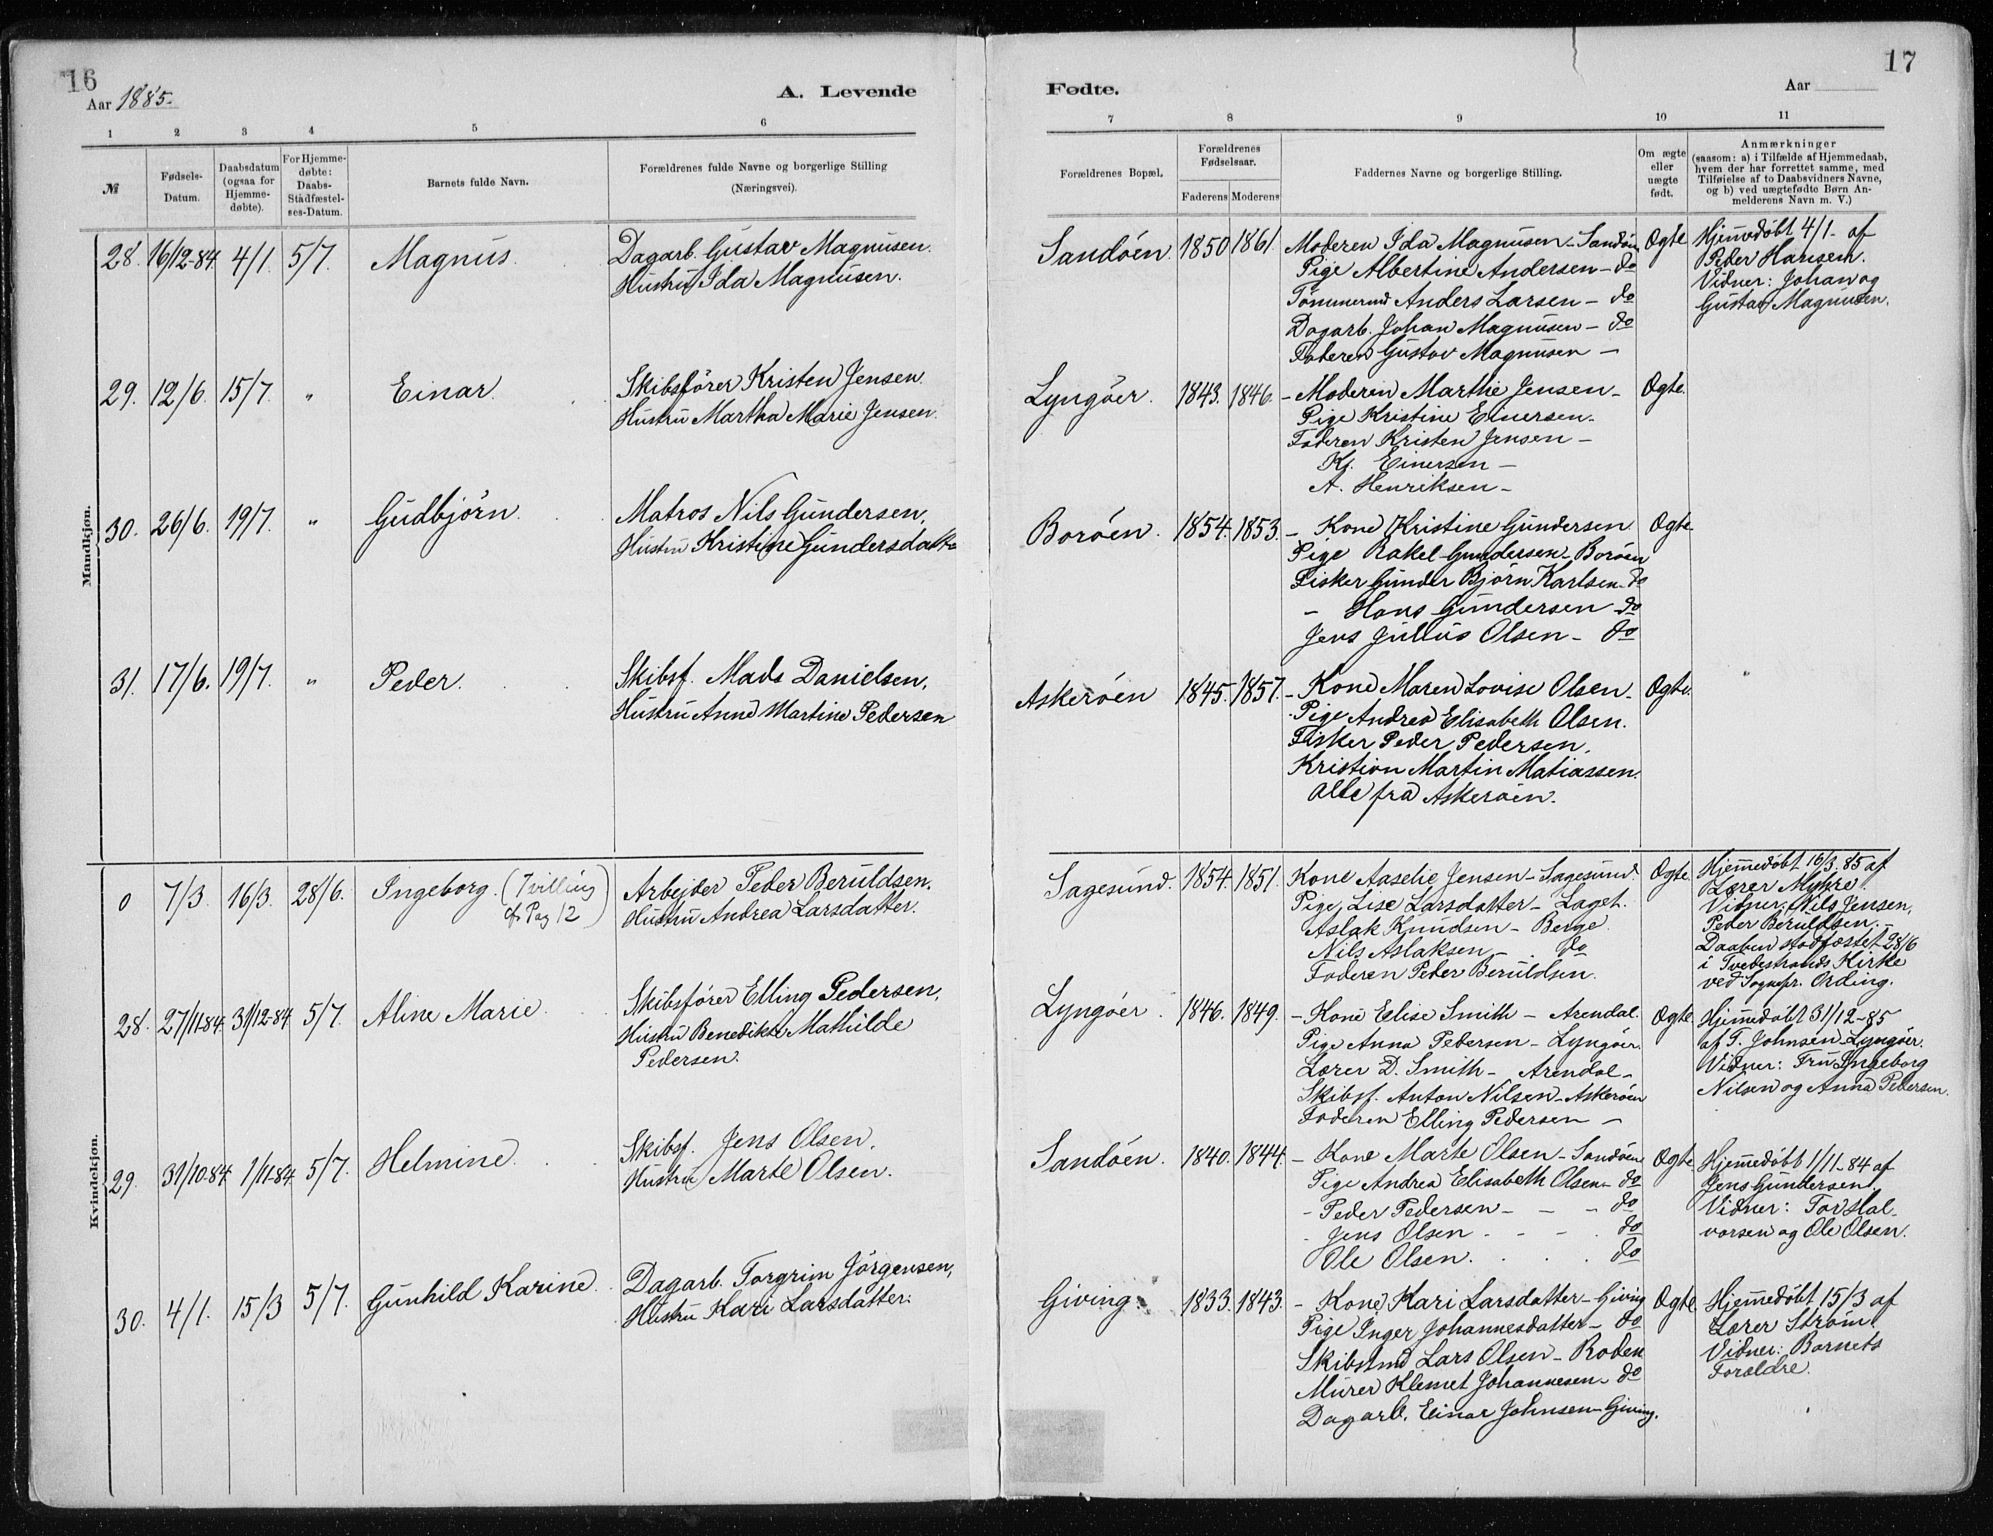 16
Aar 1885.
A. Levende
1 2 3 4 5 6
№
Fødsels-
Datum.
Daabsdatum
(ogsaa for
Hjemme-
døbte).
For Hjemme-
døbte:
Daabs-
Stadfæstel-
ses-Datum.
Barnets fulde Navn.
Forældrenes fulde Navne og borgerlige Stilling
(Næringsvei).
Mandkjøn.
28. 16/12-84 4/1. 5/7. Magnus. Dagarb. Gustav Magnusen.
Hustru Ida Magnusen.
29. 12/6. 15/7. " Einar. Skibsfører Kristen Jensen.
Hustru Martha Marie Jensen.
30. 26/6. 19/7. " Gudbjørn. Matros Nils Gundersen,
Hustru Kristine Gundersdatter
31. 17/6. 19/7. " Peder. Skibsf. Mads Danielsen,
Hustru Anne Martine Pedersen
Kvindekjøn.
0 7/3. 16/3. 28/6. Ingeborg. (Tvilling Arbejder Peder Beruldsen.
cfr Pag 12) Hustru Andrea Larsdatter.
28. 27/11-84. 31/12-84. 5/7. Aline Marie. Skibsfører Elling Pedersen,
Hustru Benedikte Mathilde
Pedersen.
29. 31/10-84 1/11-84 5/7. Helmine. Skibsf. Jens Olsen,
Hustru Marte Olsen.
30. 4/1. 15/3 5/7. Gunhild Karine. Dagarb. Torgrim Jørgensen,
Hustru Kari Larsdatter.
17
Fødte.
Aar
7 8 9 10 11
Forældrenes Bopæl.
Forældrenes
Fødselsaar.
Faderens Moderens
Faddernes Navne og borgerlige Stilling.
Om ægte
eller
uægte
født.
Anmærkninger
(saasom: a) i Tilfælde af Hjemmedaab,
hvem der har forrettet samme, med
Tilføielse af to Daabsvidners Navne,
og b) ved uægtefødte Børn An-
melderens Navn m. V.)
Sandøen. 1850 1861. Moderen Ida Magnusen - Sandøen Ægte Hjemmedøbt 4/1 - af
Pige Albertine Andersen - do Peder Hansen.
Tømmermd Anders Larsen - do Vidner: Johan og
Dagarb. Johan Magnusen - do Gustav Magnusen.
Faderen Gustav Magnusen -
Lyngøer. 1843. 1846. - Moderen Marthe Jensen - Ægte.
Pige Kristine Einersen -
Faderen Kristen Jensen -
Kj. Einersen -
A. Henriksen -
Borøen. 1854. 1853. - Kone Kristine Gundersen Ægte
Pige Rakel Gundersen - Borøen
Fisker Gunder Bjørn Karlsen - do
- Hans Gundersen do
Jens Julius Olsen - do
Askerøen 1845. 1857. - Kone Maren Lovise Olsen - Ægte.
Pige Andrea Elisabeth Olsen.
Fisker Peder Pedersen.
Kristian Martin Matiassen.
Alle fra Askerøen.
Sagesund. 1854. 1851. Kone Aaselie Jensen - Sagesund. Ægte. Hjemmedøbt 16/3. 85 af
Pige, Lise Larsdatter - Laget. Lærer Myhre.
Aslak Knudsen - Berge. Vidner: Nils Jensen,
Nils Aslaksen - do Peder Beruldsen. -
Faderen Peder Beruldsen. Daaben stadfæstet 28/6
i Tvedestrands Kirke
ved Sognepr. Ording.
Lyngøer. 1846. 1849. - Kone Elise Smith - Arendal. Ægte. Hjemmedøbt 31/12-85
Pige Anna Pedersen - Lyngøer. af T. Johnsen - Lyngøer.
Lærer D. Smith - Arendal - Vidner: Fru Ingeborg
Skibsf. Anton Nilsen - Askerøen Nilsen og Anna Pedersen.
Faderen Elling Pedersen -
Sandøen. 1840. 1844. - Kone Marte Olsen - Sandøen Ægte Hjemmedøbt 1/11-84 af
Pige Andrea Elisabeth Olsen - do Jens Gundersen.
- Peder Pedersen - - - do Vidner: Tor Hal-
Jens Olsen - - - do vorsen og Ole Olsen.
Ole Olsen. . . . do
Giving. 1833. 1843. - Kone Kari Larsdatter - Giving Ægte. Hjemmedøbt 15/3 af
Pige Inger Johannesdatter - do Lærer Strøm.
Skibstmd Lars Olsen - Roden Vidner: Barnets
Murer Klemet Johannesen - do Forældre.
Dagarb. Einar Johnsen - Giving.